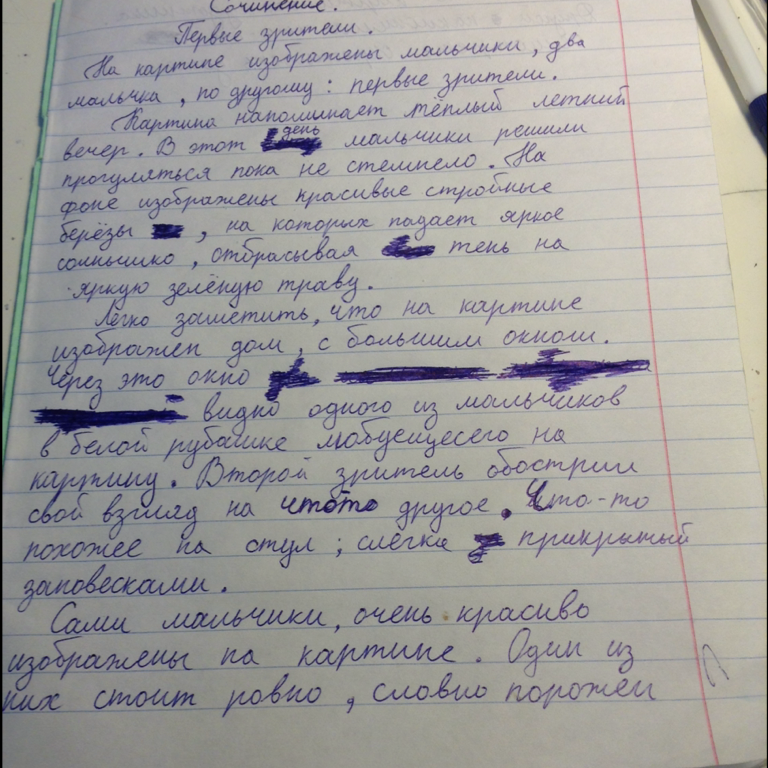 Сочинение.
Первые зрители.
На картине изображены мальчики, два
мальчка, по другому: первые зрители.
Картина напоминает тёплый летний
вечер. В этот день мальчики решили
прогуляться пока не стемнело. На
фоне изображены красивые стробные
берёзы , на которых падает яркое
солнышко, отбрасывая тень на
яркую зелёную траву.
Легко заметить, что на картине
изображен дом, с большим окном.
Через это окно
видно одного из мальчиков
в белой рубашке любуещесего на
картину. Второй зритель обострил
свой взгляд на чтото другое. Что-то
похожее на стул; слегка прикрытый
заповесками.
Сами мальчики, очень красиво
изображены на картине. Один из
них стоит ровно, словно порожен